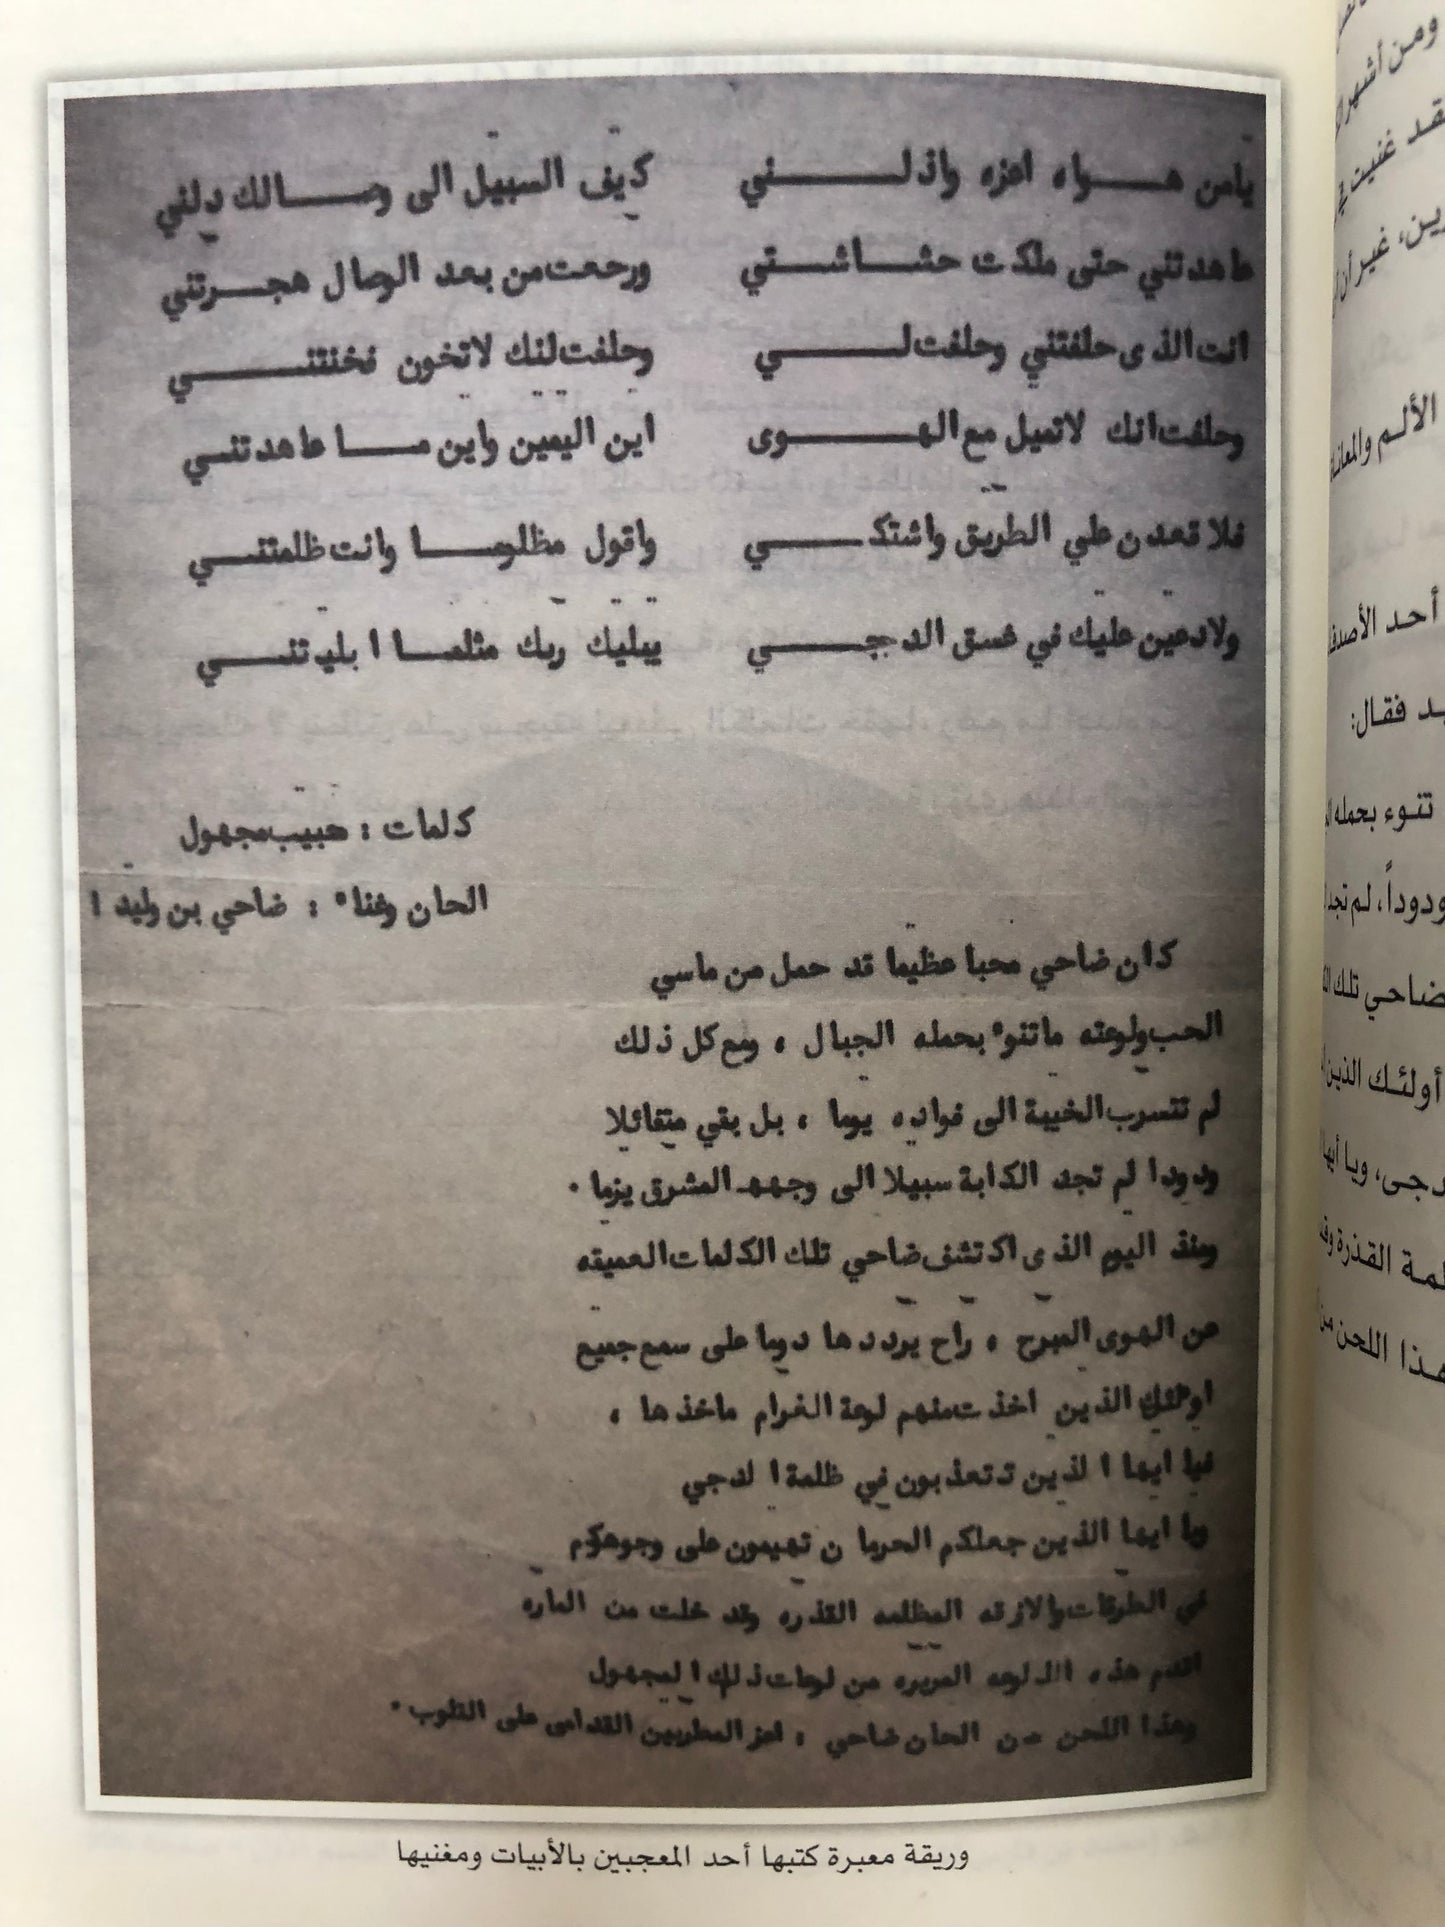 يامن هواه اعزه واذلني كيف السبيل الى وصالك دلني
عاهدتني حتى ملكت حشاشتي ورجعت من بعد الوصال هجرتني
انت الذى حلفتني وحلفت لي وحلفت لنك لاتخون فخنتني
وحلفت انك لاتميل مع الهوى اين اليمين واين ما عاهدتني
فلا قعدن علي الطريق واشتكي واقول مظلوما وانت ظلمتني
ولادعين عليك في غسق الدجي يبليك ربك مثلما ابليتني
كلمات : حبيب مجهول
الحان وغناء : ضاحي بن وليد ا
كان ضاحي محبا عظيما قد حمل من ماسي
الحب ولوعته ماتنوء بحمله الجبال ، ومع كل ذلك
لم تتسرب الخيبة الى فواده يوما ، بل بقي متفائلا
ودودا لم تجد الكابة سبيلا الى وجهه المشرق يوما .
ومنذ اليوم الذى اكتشف ضاحي تلك الكلمات العميقه
عن الهوى المبرح ، راح يرددها دوما على سمع جميع
اولئك الذين اخذت منهم لوعة الغرام ماخذها ،
فيا ايها الذين تتعذبون في ظلمة الدجي
ويا ايها الذين جعلكم الحرمان تهيمون على وجوهكم
في الطرقات والازقه المظلمه القذره وقد خلت من الماره
اقدم هذه اللوعه المريره من لوعات ذلك المجهول
وهذا اللحن من الحان ضاحي ، اعز المطربين القدامى على القلوب .
وريقة معبرة كتبها أحد المعجبين بالأبيات ومغنيها
ومن أشهر
غنيت
غير أن
الألم
أحد
فقال:
تنوء بحمله
لم تجد
تلك
أولئك الذين
القذرة
اللحن من